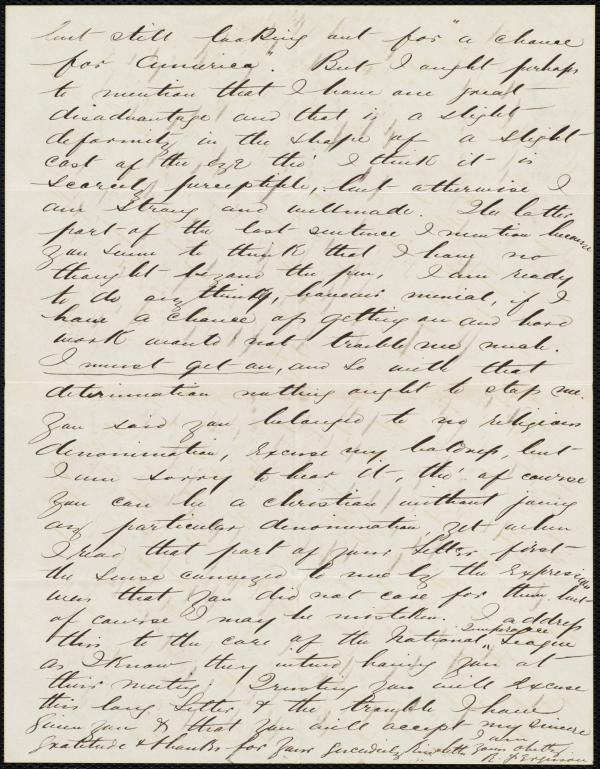 but still looking out for "a chance
for America". But I ought perhaps
to mention that I have one great
disadvantage and that is a slight
deformity in the shape of a slight
cast of the eye tho' I think it is
scarcely perceptible, but otherwise I
am strong and wellmade. The latter
part of the last sentence I mention because
you seem to think that I have no
thought beyond the pen, I am ready
to do anything, however menial, if I
have a chance of getting on and hard
work would not trouble me much.
I must get on, and so with that
determination nothing ought to stop me.
You said you belonged to no religious
denomination, excuse my boldness, but
I am sorry to hear it, tho' of course
you can be a christian without joing
any particular denomination, yet when
I read that part of your letter first
the sense conveyed to me by the expression
was that you did not care for them but
of course I may be mistaken. I address
this to the care of the National Temperance League
as I know they intend having you at
their meeting. Trusting you will excuse
this long letter & the trouble I have
given you & that you will accept my sincere
gratitude & thanks for your kindness I am
yours truly
R. Ferguson